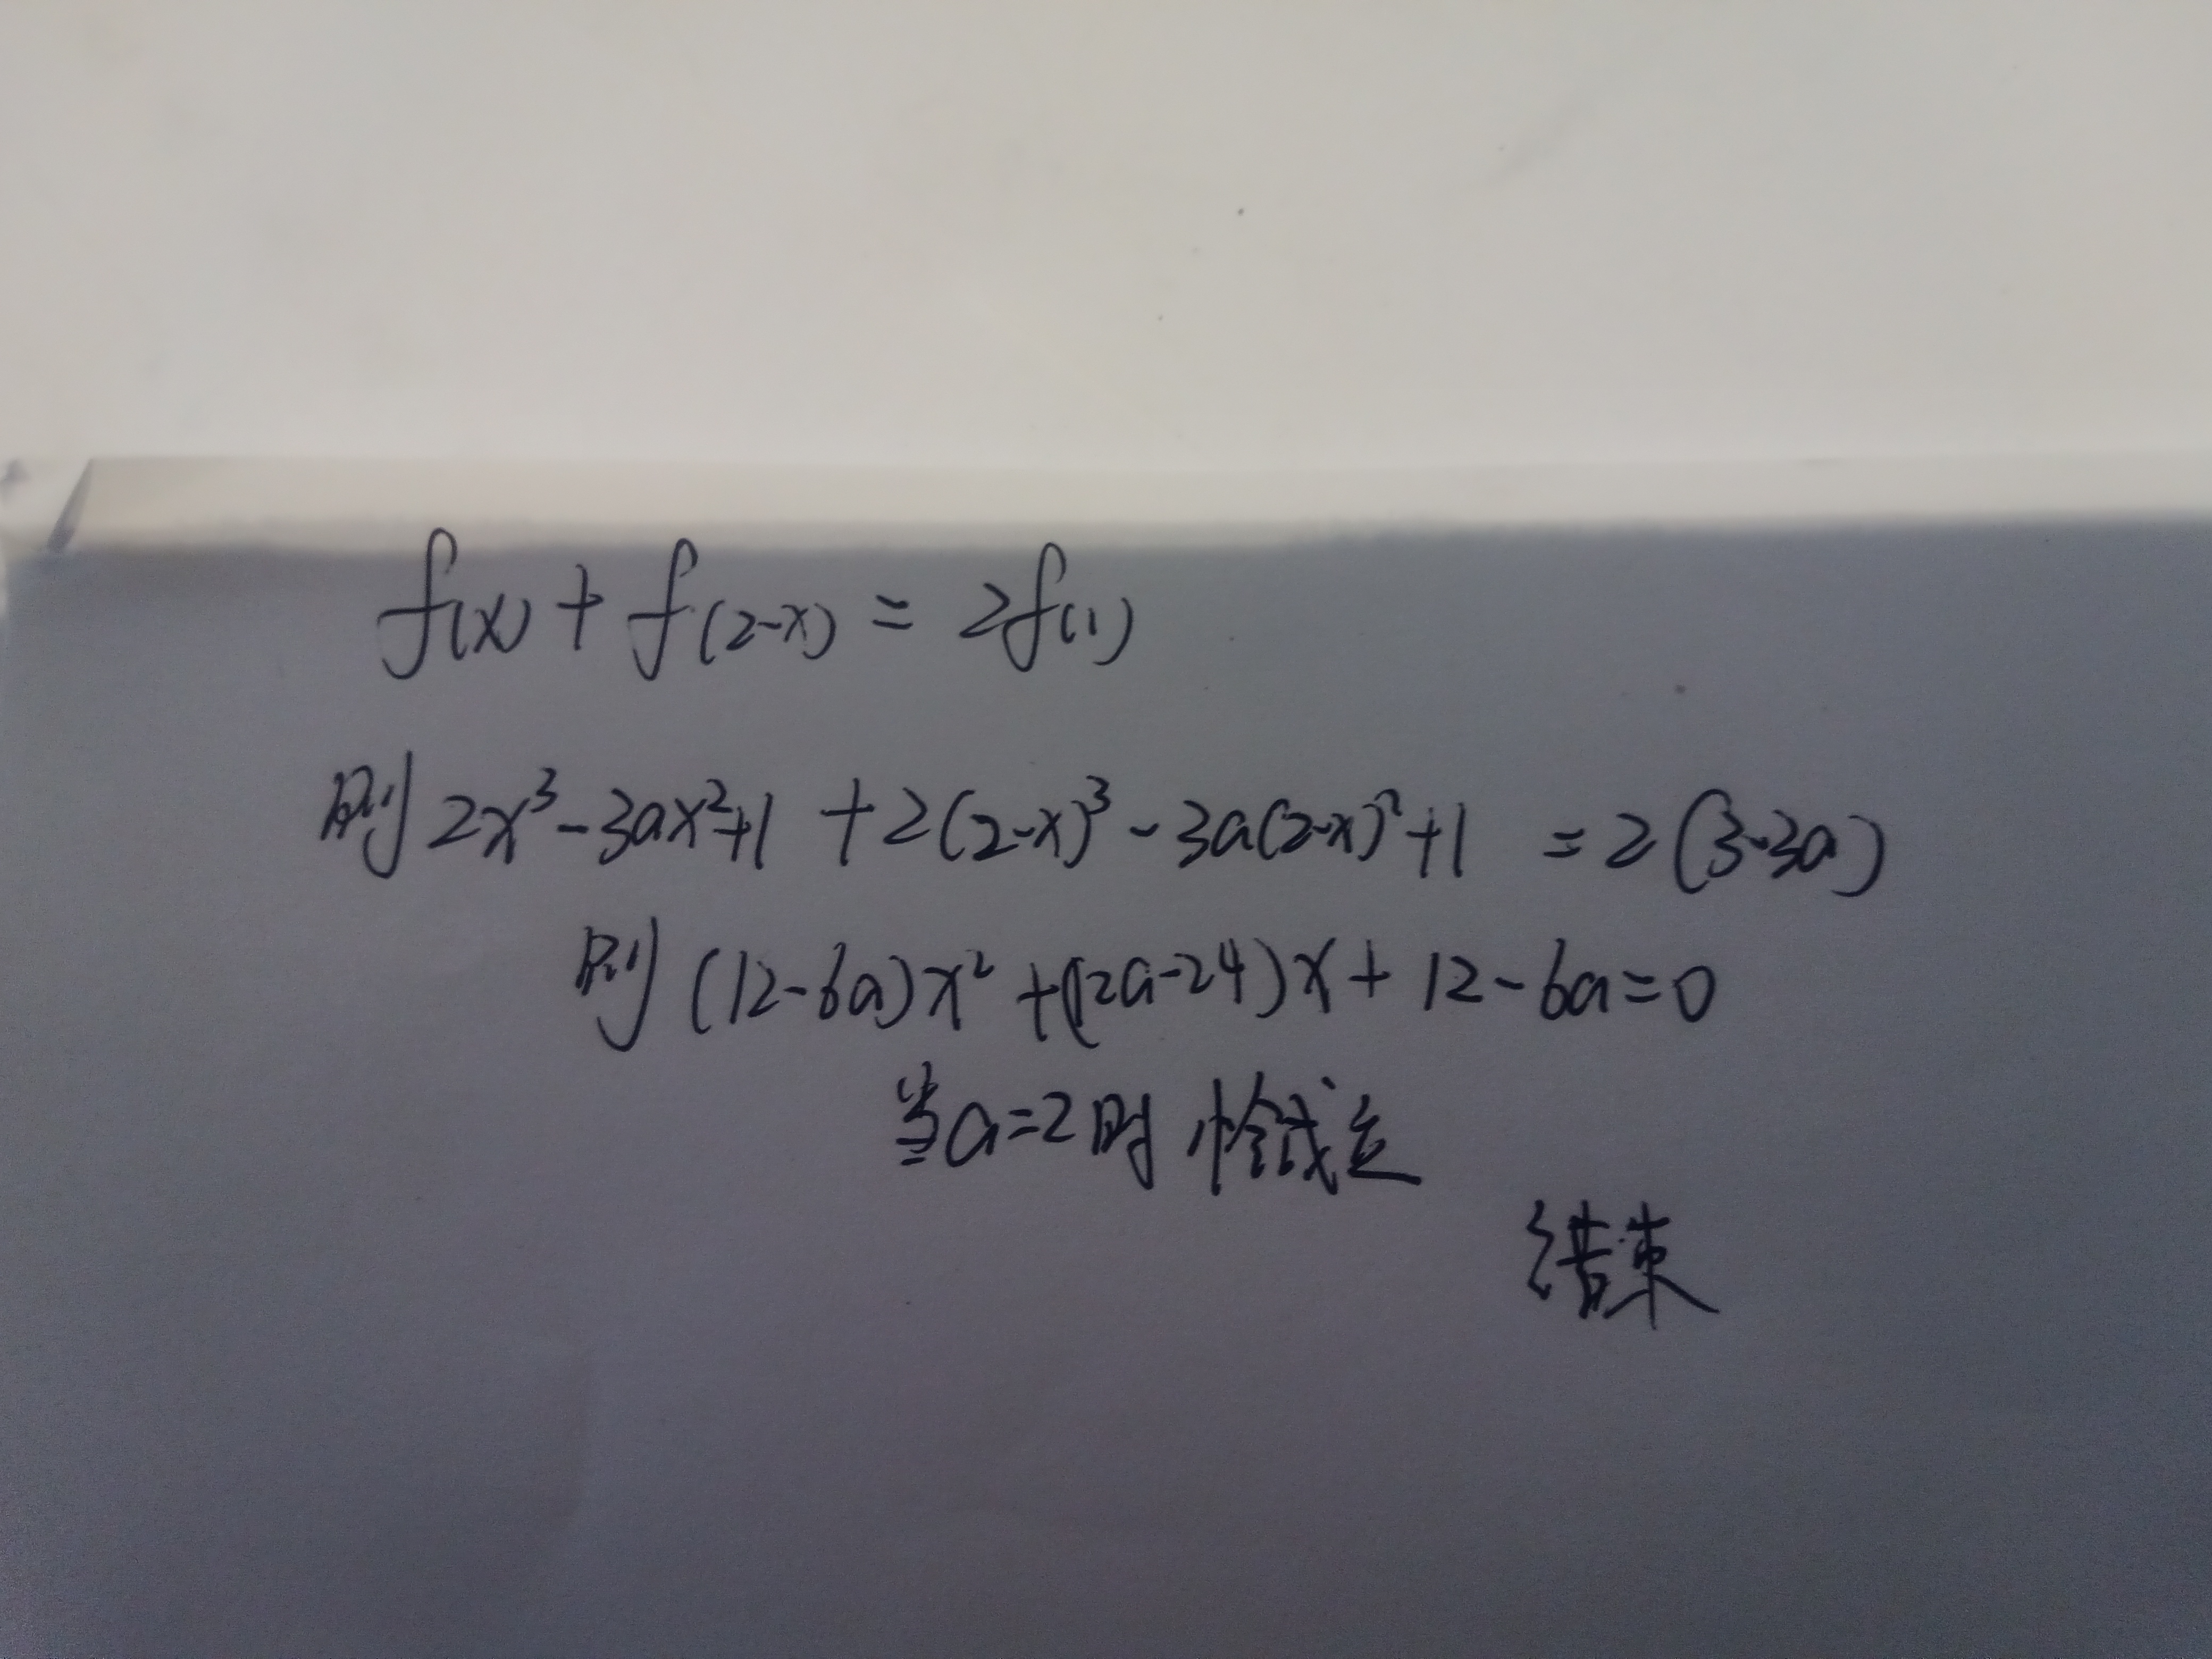 f(x)+f(2-x)=2f(1)
则 2x³-3ax²+1 +2(2-x)³-3a(2-x)²+1 =2(3-3a)
则 (12-6a)x²+(12a-24)x+12-6a=0
当a=2时 恰成立
结束